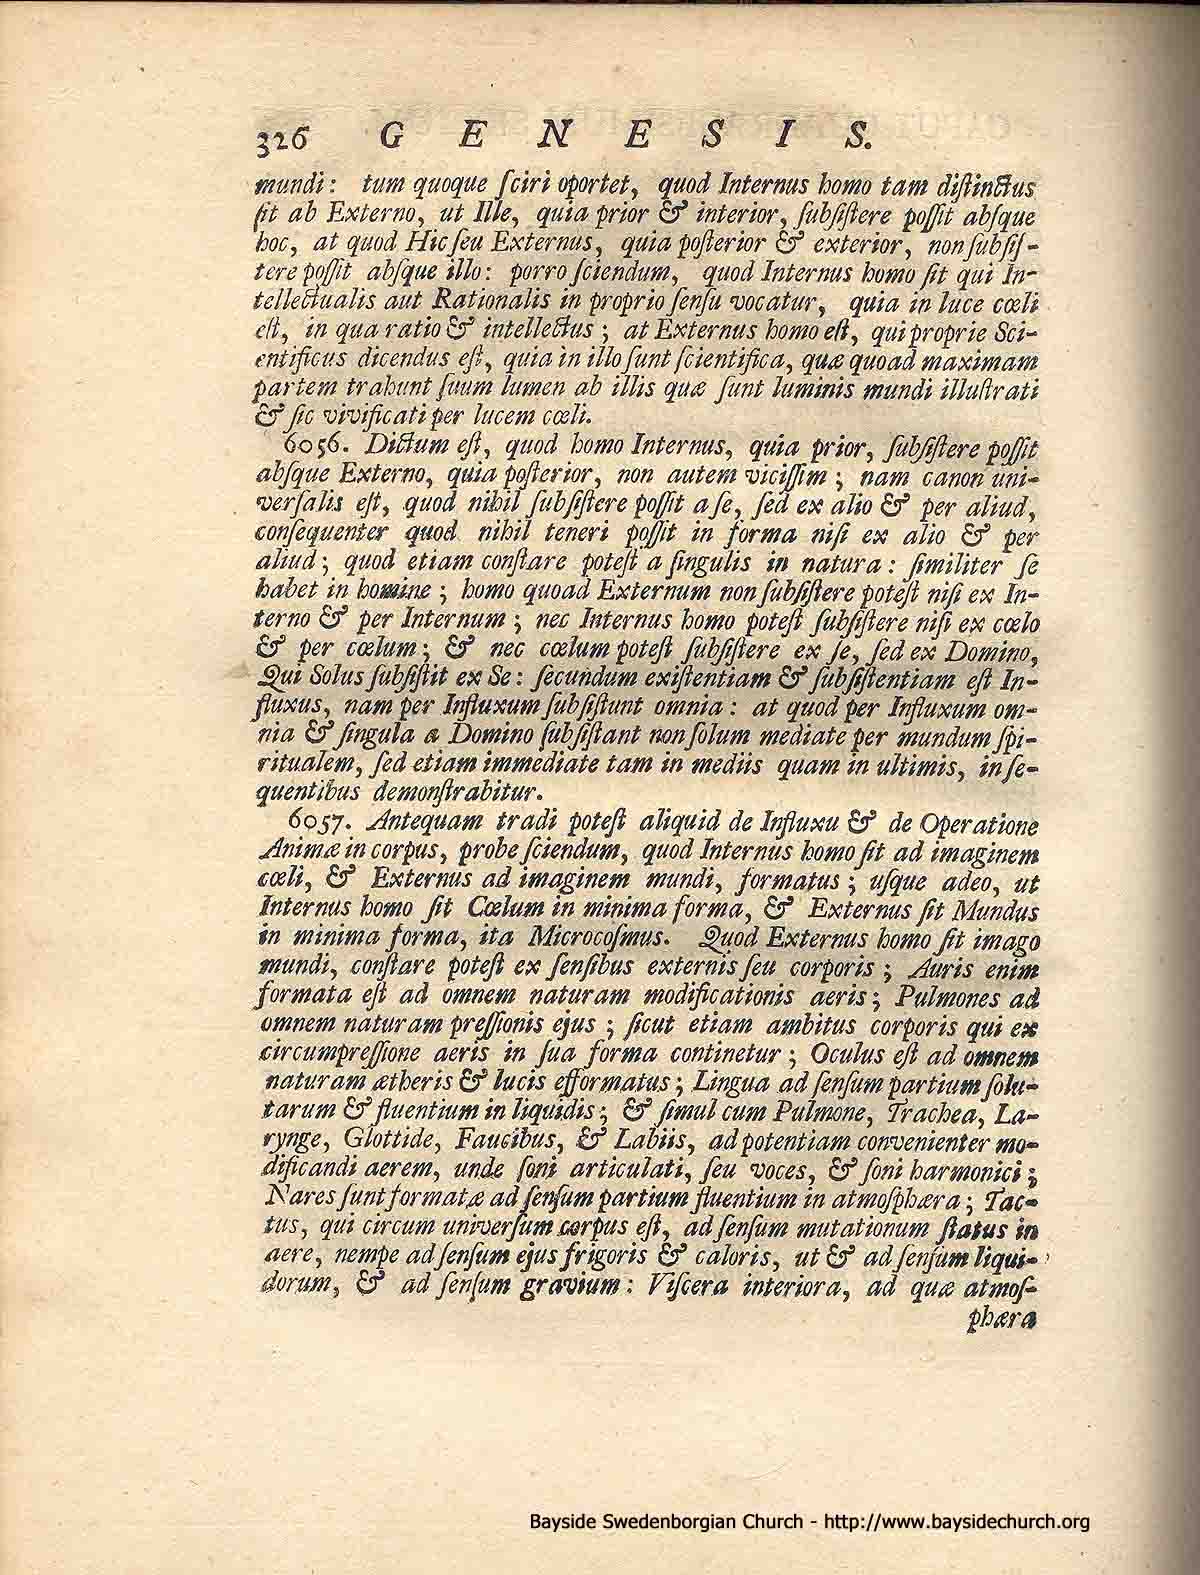 326 GENESIS.
mundi: tum quoque ſciri oportet, quod Internus homo tam diſtinctus
ſit ab Externo, ut Ille, quia prior & interior, ſubſiſtere poſſit abſque
hoc, at quod Hic ſeu Externus, quia poſterior & exterior, non ſubſiſ-
tere poſſit abſque illo: porro ſciendum, quod Internus homo ſit qui In-
tellectualis aut Rationalis in proprio ſenſu vocatur, quia in luce cœli
eſt, in qua ratio & intellectus; at Externus homo eſt, qui proprie Sci-
entificus dicendus eſt, quia in illo ſunt ſcientifica, quæ quoad maximam
partem trahunt ſuum lumen ab illis quæ ſunt luminis mundi illuſtrati
& ſic vivificati per lucem cœli.
6056. Dictum eſt, quod homo Internus, quia prior, ſubſiſtere poſſit
abſque Externo, quia poſterior, non autem viciſſim; nam canon uni-
verſalis eſt, quod nihil ſubſiſtere poſſit a ſe, ſed ex alio & per aliud,
conſequenter quod nihil teneri poſſit in forma niſi ex alio & per
aliud; quod etiam conſtare poteſt a ſingulis in natura: ſimiliter ſe
habet in homine; homo quoad Externum non ſubſiſtere poteſt niſi ex In-
terno & per Internum; nec Internus homo poteſt ſubſiſtere niſi ex cœlo
& per cœlum; & nec cœlum poteſt ſubſiſtere ex ſe, ſed ex Domino,
Qui Solus ſubſiſtit ex Se: ſecundum exiſtentiam & ſubſiſtentiam eſt In-
fluxus, nam per Influxum ſubſiſtunt omnia: at quod per Influxum om-
nia & ſingula a Domino ſubſiſtant non ſolum mediate per mundum ſpi-
ritualem, ſed etiam immediate tam in mediis quam in ultimis, in ſe-
quentibus demonſtrabitur.
6057. Antequam tradi poteſt aliquid de Influxu & de Operatione
Animæ in corpus, probe ſciendum, quod Internus homo ſit ad imaginem
cœli, & Externus ad imaginem mundi, formatus; uſque adeo, ut
Internus homo ſit Cœlum in minima forma, & Externus ſit Mundus
in minima forma, ita Microcoſmus. Quod Externus homo ſit imago
mundi, conſtare poteſt ex ſenſibus externis ſeu corporis; Auris enim
formata eſt ad omnem naturam modificationis aeris; Pulmones ad
omnem naturam preſſionis ejus; ſicut etiam ambitus corporis qui ex
circumpreſſione aeris in ſua forma continetur; Oculus eſt ad omnem
naturam ætheris & lucis efformatus; Lingua ad ſenſum partium ſolu-
tarum & fluentium in liquidis; & ſimul cum Pulmone, Trachea, La-
rynge, Glottide, Faucibus, & Labiis, ad potentiam convenienter mo-
dificandi aerem, unde ſoni articulati, ſeu voces, & ſoni harmonici;
Nares ſunt formatæ ad ſenſum partium fluentium in atmoſphæra; Tac-
tus, qui circum univerſum corpus eſt, ad ſenſum mutationum ſtatus in
aere, nempe ad ſenſum ejus frigoris & caloris, ut & ad ſenſum liqui-
dorum, & ad ſenſum gravium: Viſcera interiora, ad quæ atmoſ-
phæra
Bayside Swedenborgian Church - http://www.baysidechurch.org